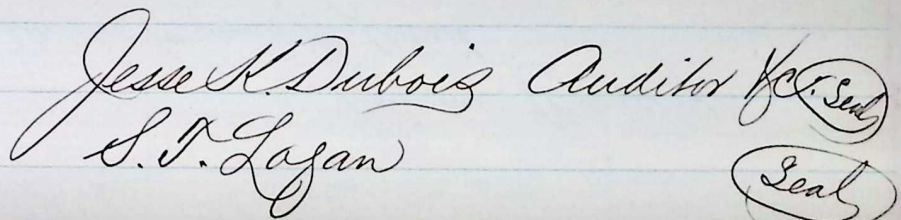 Jesse K. Dubois Auditor &c. Seal
S. T. Logan Seal